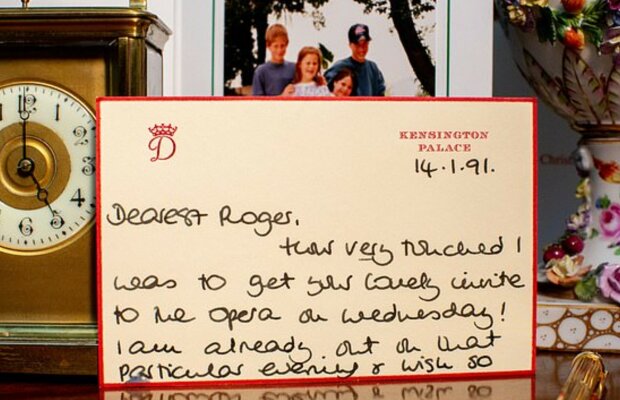 D
KENSINGTON
PALACE
14.1.91.
Dearest Roger,
How very touched I
was to get your lovely invite
to the opera on Wednesday!
I am already out on that
particular evening & wish so